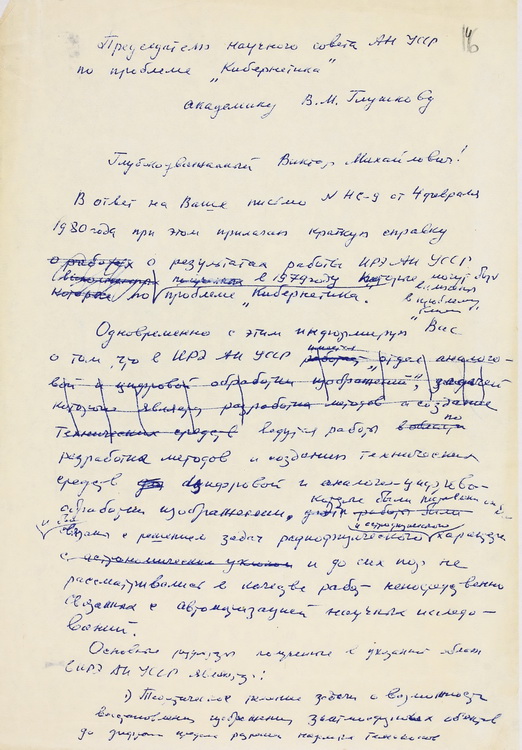 16
Председателю научного совета АН УССР
по проблеме „Кибернетика"
академику В.М. Глушкову
Глубокоуважаемый Виктор Михайлович!
В ответ на Ваше письмо N НС-9 от 4 февраля
1980 года при этом прилагаю краткую справку
о работах о результатах работы ИРЭ АН УССР
в 1979 году которые могут быть
которые по проблеме „Кибернетика".
Одновременно с этим информирую Вас
о том, что в ИРЭ АН УССР имеется работает „отдел аналого-
вой и цифровой обработки изображений", задачей
которого является разработка методов и создание
технических средств ведутся работы по
разработке методов и созданию технических
средств цифровой и аналого-цифрово-
обработки изображений, работы были
связаны с решением задач радиофизического характера
и астрономического
с астрономическим уклоном и до сих пор не
рассматривались в качестве работ непосредственно
связанных с автоматизацией научных исследо-
ваний.
Основные результаты полученные в указанной области
в ИРЭ АН УССР являются:
1) Теоретическое решение задачи о возможности
восстановления изображения
до